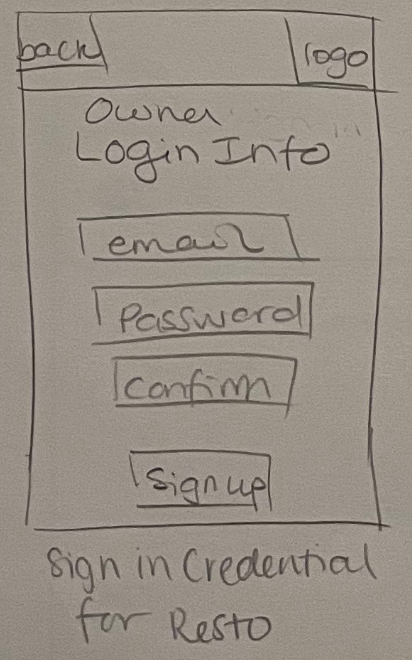 back
logo
Owner
Login Info
email
Password
Confirm
Signup
Sign in Credential
for Resto